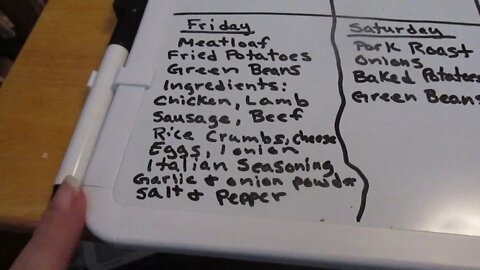 Friday
Meatloaf
Fried Potatoes
Green Beans
Ingredients:
Chicken, Lamb
Sausage, Beef
Rice Crumbs, cheese
Eggs, 1 onion
Italian Seasoning
Garlic & onion powder
Salt & Pepper
Saturday
Pork Roast
Onions
Baked Potatoes
Green Beans